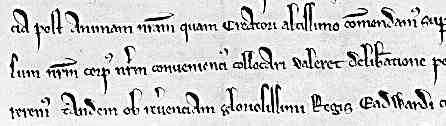 ad post animam nr̄am quam Creatori altissimo com̄endam⁹ sup
tum nr̄m corp⁹ nr̄m convenienci⁹ collocari valeret delib̄atione po
rerem⁹ tandem ob rev̄enciam gloriosissimi Regis Eadwardi c